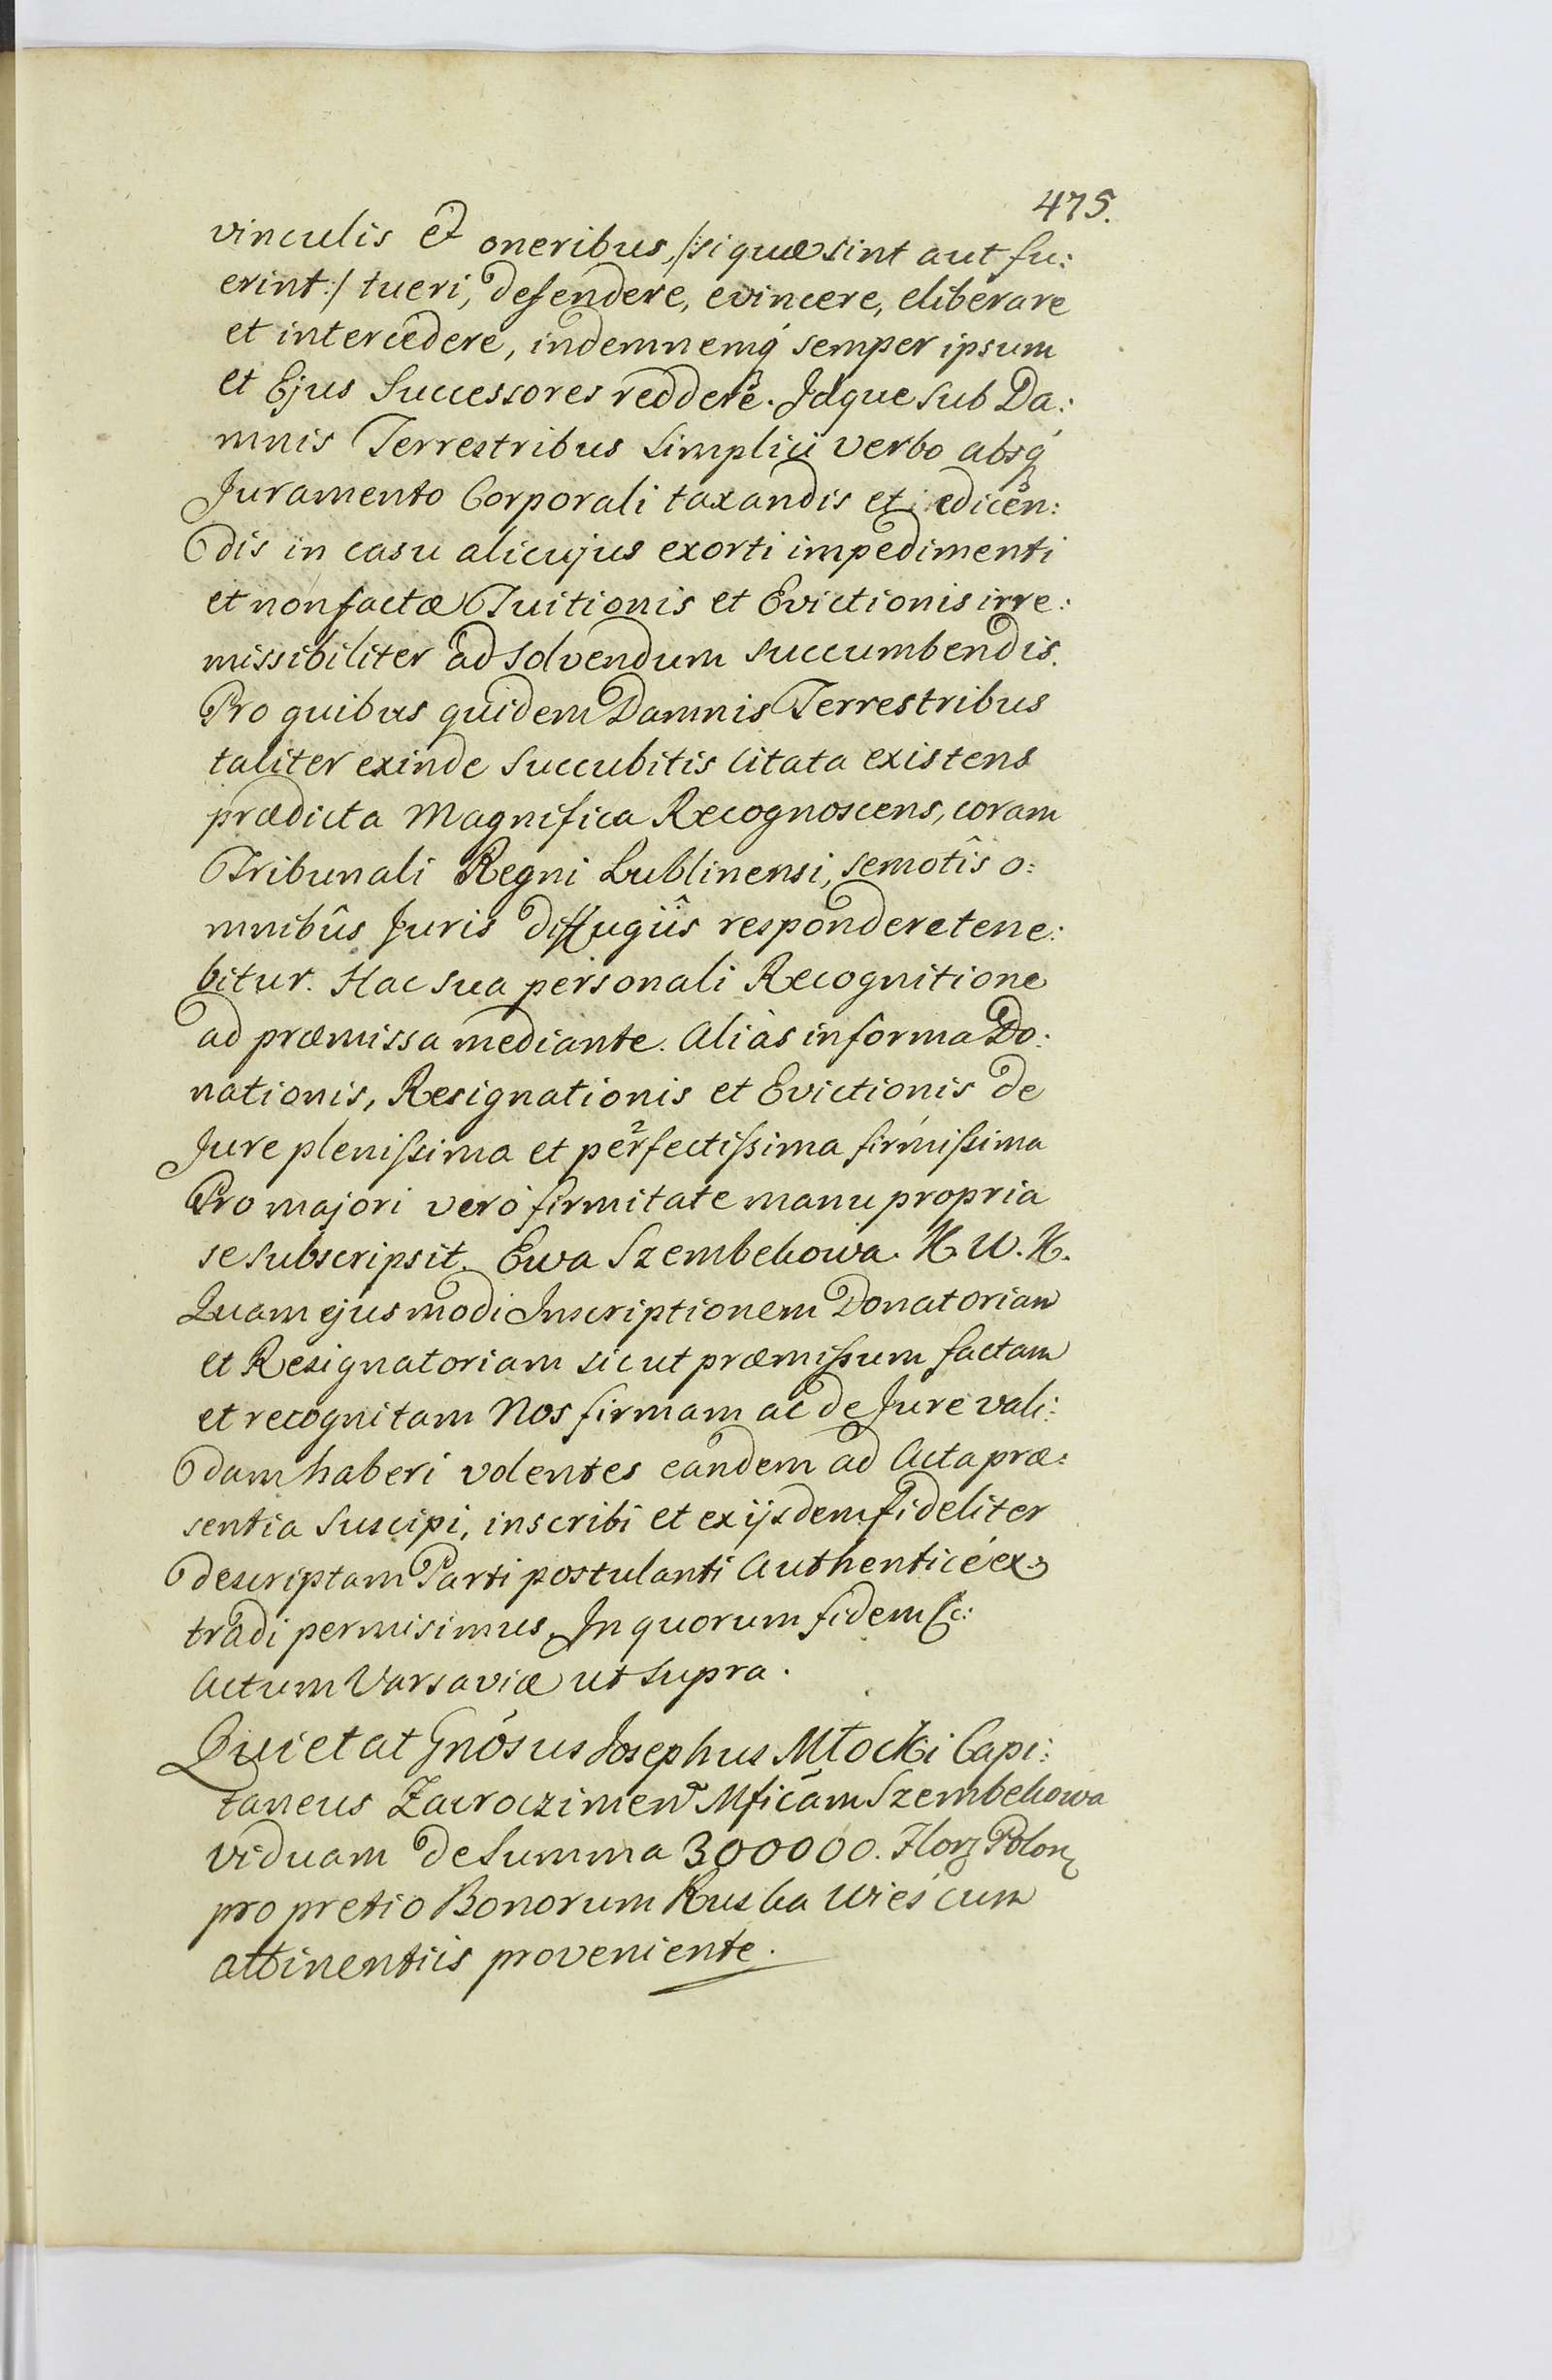 475.
vinculis et oneribus, /:si quæ sint aut fu:
erint:/ tueri, defendere, evincere, eliberare
et intercedere, indemnemq́ semper ipsum
et Ejus Successores reddere. Idque sub Da:
mnis Terrestribus simplici verbo absq́
Juramento Corporali taxandis et edicen:
dis in casu alicujus exorti impedimenti
et non factæ Tuitionis et Evictionis irre:
missibiliter ad solvendum succumbendis.
Pro quibus quidem Damnis Terrestribus
taliter exinde succubitis Citata existens
prædicta Magnifica Recognoscens, coram
Tribunali Regni Lublinensi, semotîs o:
mnibûs Juris diffugiîs respondere tene:
bitur. Hac sua personali Recognitione
ad præmissa mediante. Aliàs in forma Do:
nationis, Resignationis et Evictionis de
Jure plenissima et perfectissima firmissima
Pro majori verò firmitate manu propria
se subscripsit. Ewa Szembekowa. K. W. K.
Quam ejusmodi Inscriptionem Donatoriam
et Resignatoriam sicut præmissum factam
et recognitam Nos firmam ac de Jure vali:
dam haberi volentes eandem ad Acta præ:
sentia suscipi, inscribi et ex ijsdem fideliter
descriptam Parti postulanti Authenticè ex:
tradi permisimus. In quorum fidem &c:
Actum Varsaviæ ut supra.
Quietat Gnosus Josephus Młocki Capi:
taneus Zacroczimen Mficam Szembekowa
viduam de Summa 300000. Flor Polon
pro pretio Bonorum Ruska Wieś cum
attinentiis proveniente.